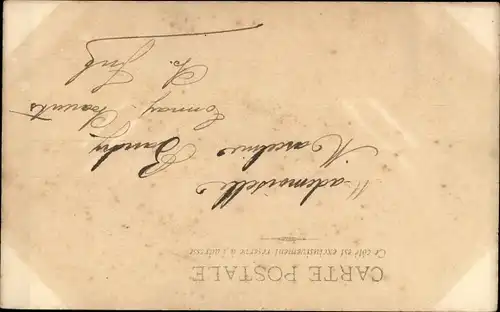 CARTE POSTALE
Ce côté est exclusivement réservé à l'adresse
Mademoiselle
Marceline Baudry
Tonnay Charente